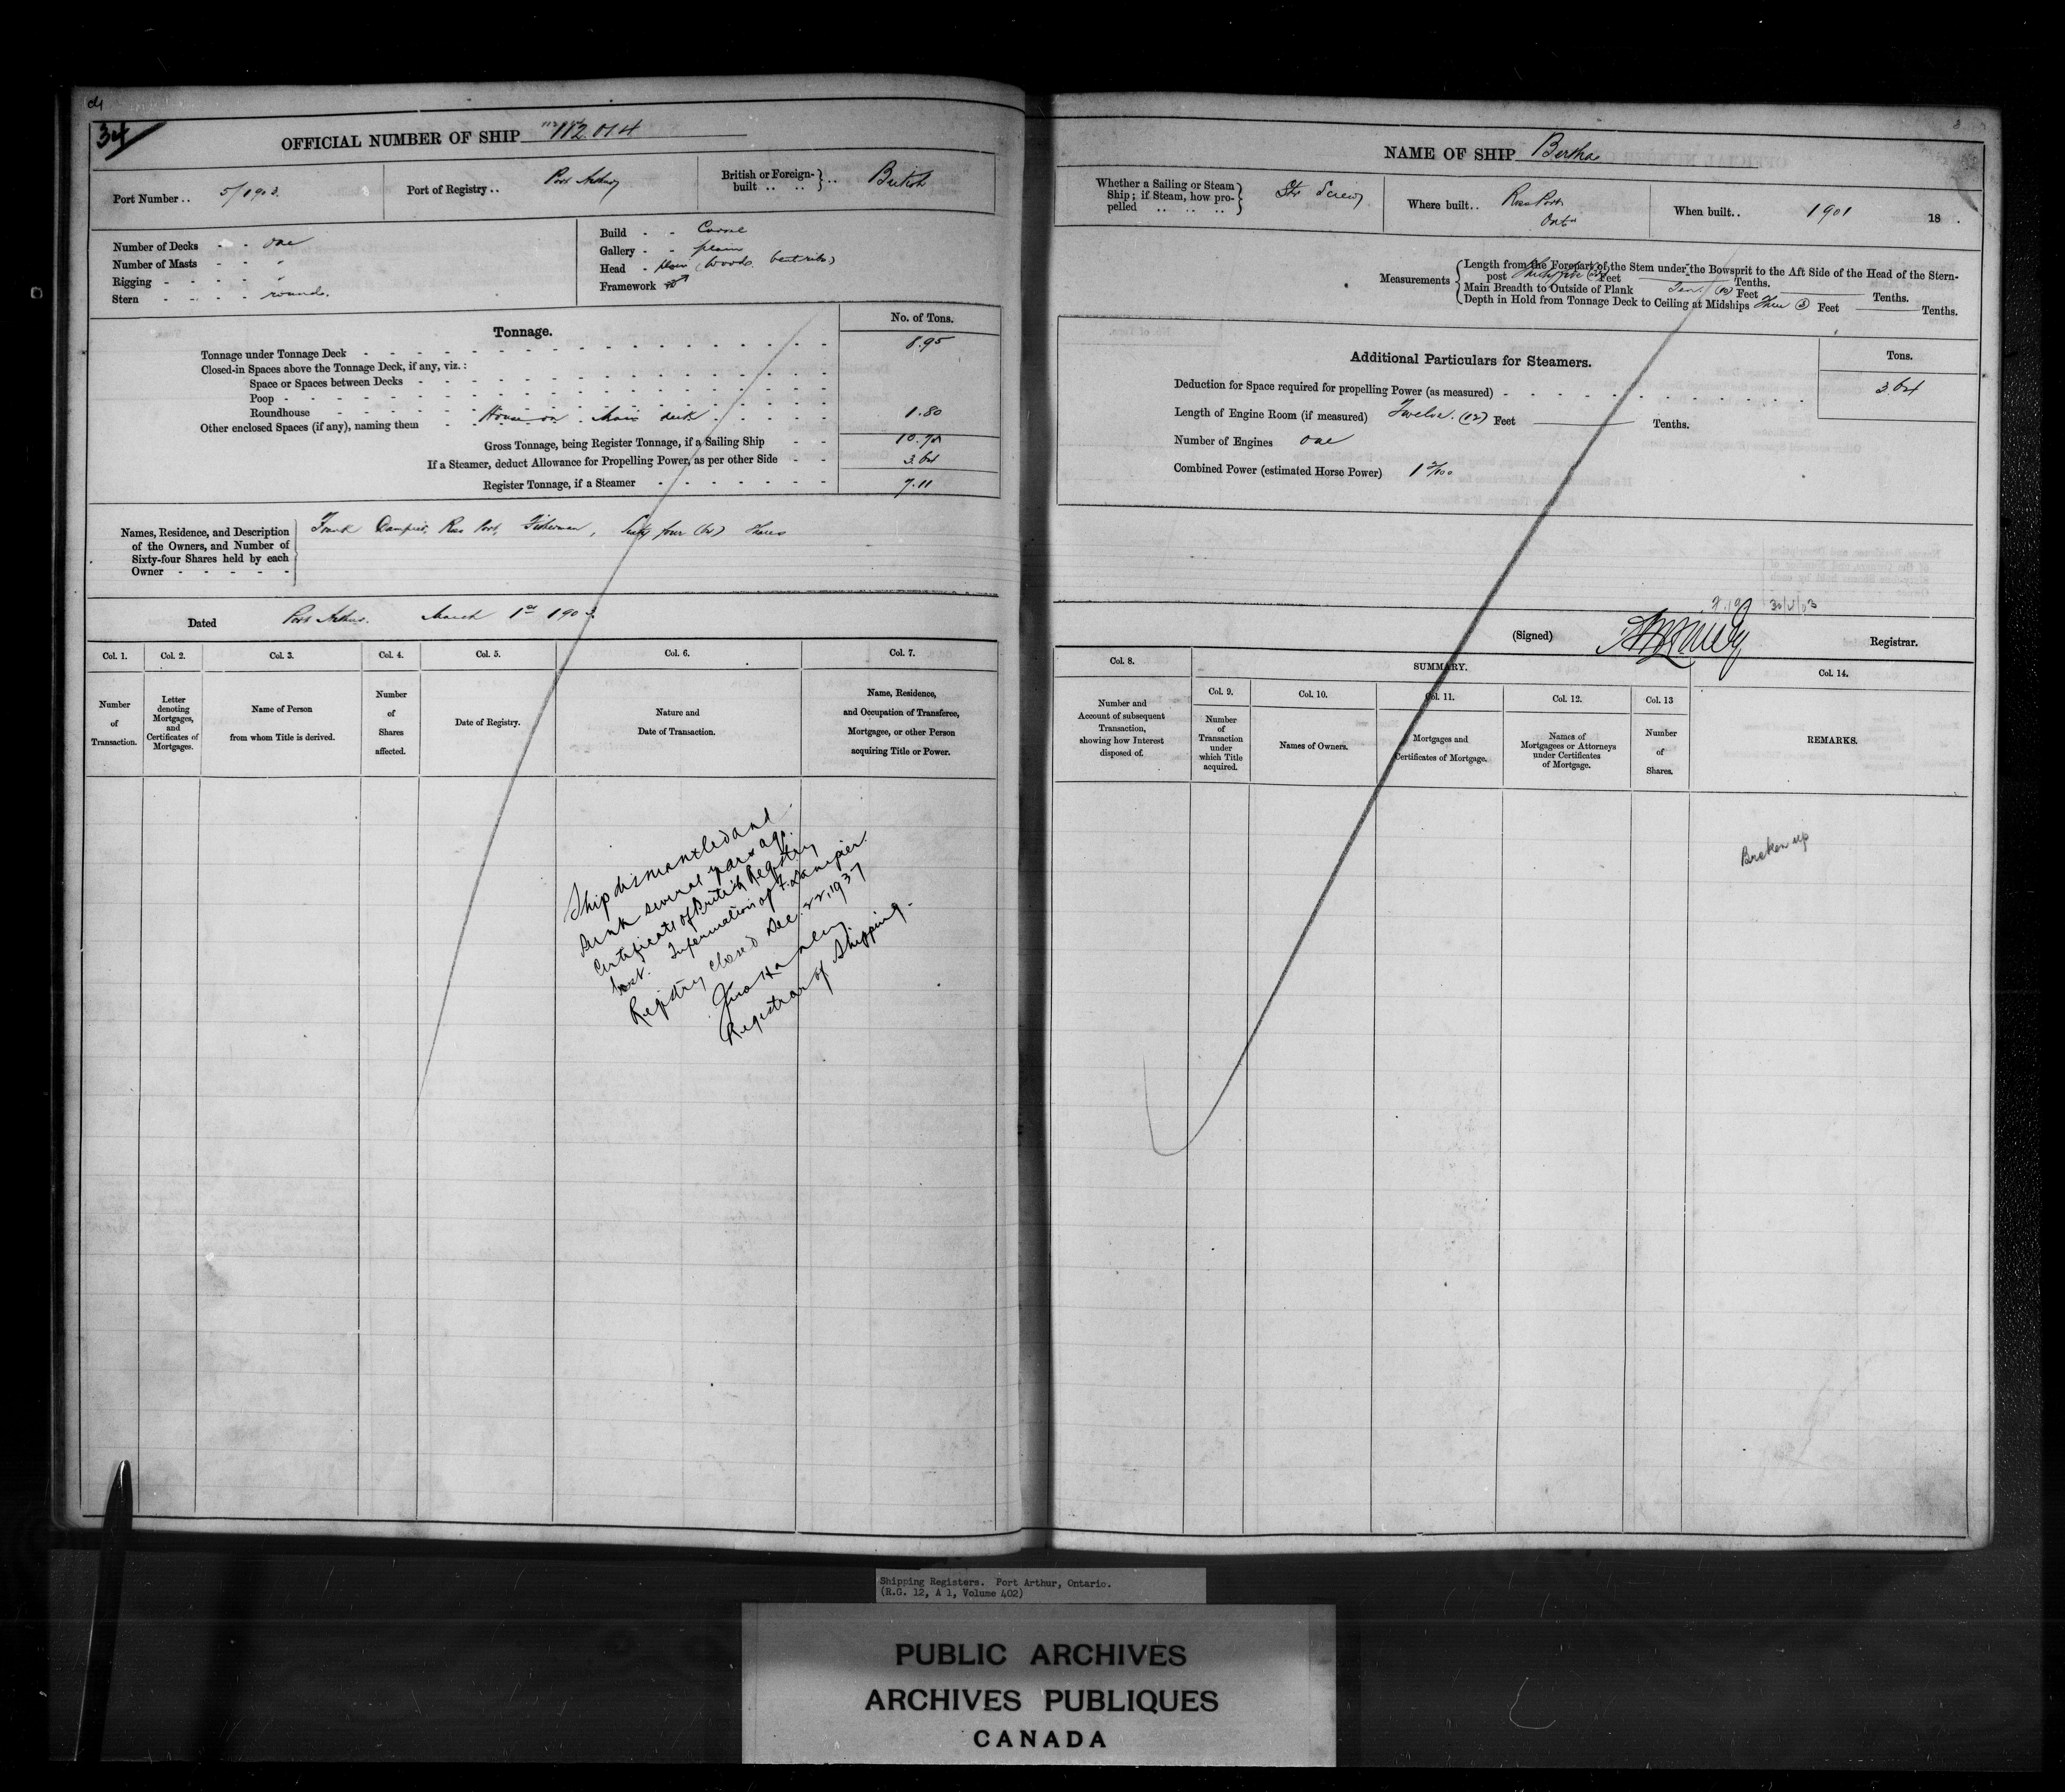 34
OFFICIAL NUMBER OF SHIP 112.014
Port Number .. 5/1903.
Port of Registry .. Port Arthur
British or Foreign-built .. .. } .. British
Number of Decks - - one
Number of Masts - - "
Rigging - - - - "
Stern - - - - round.
Build - - Carvel
Gallery - - plain
Head - plain (Wood, bent ribs)
Framework
Tonnage.
No. of Tons.
Tonnage under Tonnage Deck 8.95
Closed-in Spaces above the Tonnage Deck, if any, viz.:
Space or Spaces between Decks
Poop
Roundhouse
Other enclosed Spaces (if any), naming them House on Main deck 1.80
Gross Tonnage, being Register Tonnage, if a Sailing Ship 10.75
If a Steamer, deduct Allowance for Propelling Power, as per other Side 3.64
Register Tonnage, if a Steamer 7.11
Names, Residence, and Description of the Owners, and Number of Sixty-four Shares held by each Owner
Frank Dampier, Ross Port, Fisherman, Sixty four (64) Shares
Dated Port Arthur. March 1st 1903.
Col. 1. Col. 2. Col. 3. Col. 4. Col. 5. Col. 6. Col. 7.
Number of Transaction.
Letter denoting Mortgages, and Certificates of Mortgages.
Name of Person from whom Title is derived.
Number of Shares affected.
Date of Registry.
Nature and Date of Transaction.
Name, Residence, and Occupation of Transferee, Mortgagee, or other Person acquiring Title or Power.
Ship dismantled and
sunk several years ago.
Certificate of British Registry
lost. Information of F. Dampier.
Registry closed Dec. 22, 1937
Registrar of Shipping.
NAME OF SHIP Bertha
Whether a Sailing or Steam Ship; if Steam, how propelled .. .. .. } Str Screw
Where built .. Ross Port Ont
When built .. 1901 18 .
Measurements
Length from the Forepart of the Stem under the Bowsprit to the Aft Side of the Head of the Stern-
post Feet Tenths.
Main Breadth to Outside of Plank Ten (10) Feet Tenths.
Depth in Hold from Tonnage Deck to Ceiling at Midships Three (3) Feet Tenths.
Additional Particulars for Steamers.
Tons.
Deduction for Space required for propelling Power (as measured) 3.64
Length of Engine Room (if measured) Twelve. (12) Feet Tenths.
Number of Engines one
Combined Power (estimated Horse Power)
(Signed) Registrar.
Col. 8.
SUMMARY.
Col. 9. Col. 10. Col. 11. Col. 12. Col. 13 Col. 14.
Number and Account of subsequent Transaction, showing how Interest disposed of.
Number of Transaction under which Title acquired.
Names of Owners.
Mortgages and Certificates of Mortgage.
Names of Mortgagees or Attorneys under Certificates of Mortgage.
Number of Shares.
REMARKS.
Broken up
Shipping Registers. Port Arthur, Ontario.
(R.G. 12, A 1, Volume 402)
PUBLIC ARCHIVES
ARCHIVES PUBLIQUES
CANADA